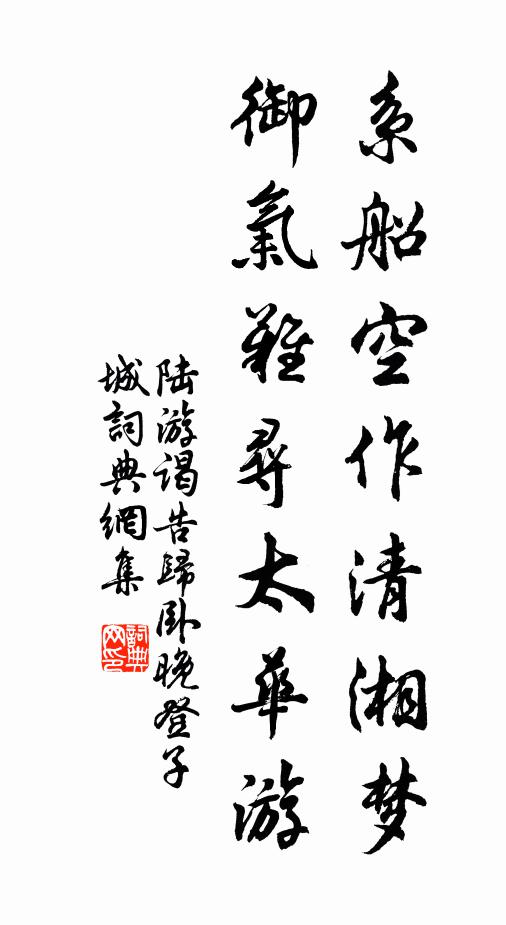 系船空作清湘梦
御氣難尋太華游
陆游谒告歸卧晚登子
城詞典網集
詞典网印